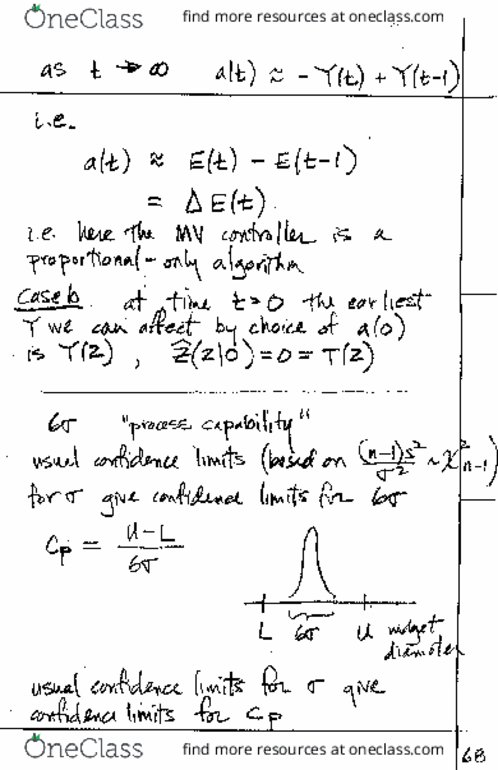 OneClass find more resources at oneclass.com
as t → ∞ a(t) ≈ - Y(t) + Y(t-1)
i.e.
a(t) ≈ E(t) - E(t-1)
= ΔE(t).
i.e. here the MV controller is a
proportional-only algorithm
Case b. at time t=0 the earliest
Y we can affect by choice of a(0)
is Y(2), Ẑ(2|0) = 0 = T(2)
6σ "process capability"
usual confidence limits (based on (n-1)s²/σ² ~ χ²n-1)
for σ give confidence limits for 6σ
Cp = U-L/6σ
L 6σ U widget
diameter
usual confidence limits for σ give
confidence limits for Cp
OneClass find more resources at oneclass.com
68